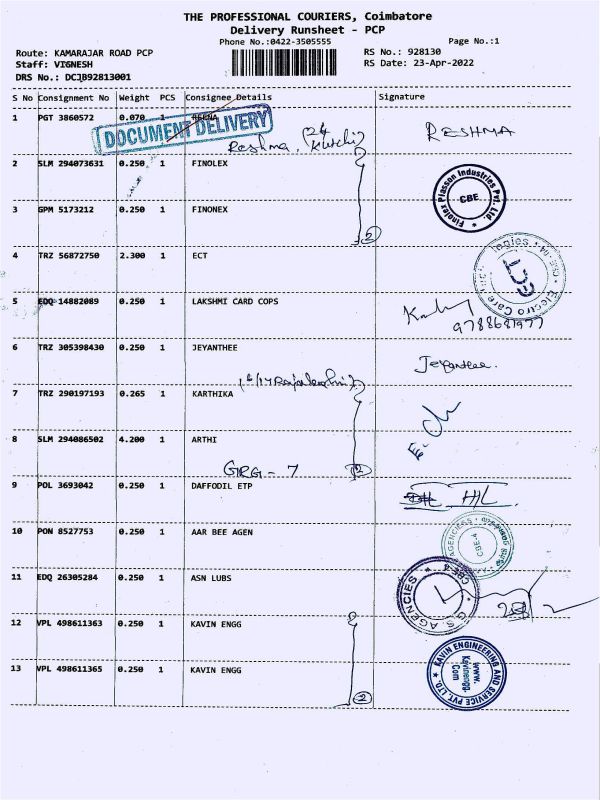 THE PROFESSIONAL COURIERS, Coimbatore
Delivery Runsheet - PCP
Phone No.:0422-3505555
Page No.:1
Route: KAMARAJAR ROAD PCP
RS No.: 928130
Staff: VIGNESH
RS Date: 23-Apr-2022
DRS No.: DCJB92813001
S No Consignment No Weight PCS Consignee Details Signature
1 PGT 3860572 0.070 1
DOCUMENT DELIVERY
Reshma, (24
RESHMA
2 SLM 294073631 0.250 1 FINOLEX
Finolex Plasson Industries Pvt. Ltd. CBE
3 GPM 5173212 0.250 1 FINONEX
2
4 TRZ 56872750 2.300 1 ECT
Electro Care
5 EDQ 14882089 0.250 1 LAKSHMI CARD COPS
6 TRZ 305398430 0.250 1 JEYANTHEE
Jeyanthee.
7 TRZ 290197193 0.265 1 KARTHIKA
8 SLM 294086502 4.200 1 ARTHI
GRG - 7 2
9 POL 3693042 0.250 1 DAFFODIL ETP
10 PON 8527753 0.250 1 AAR BEE AGEN
AGENCIES CBE-4
11 EDQ 26305284 0.250 1 ASN LUBS
G.S. AGENCIES CBE-4
12 VPL 498611363 0.250 1 KAVIN ENGG
13 VPL 498611365 0.250 1 KAVIN ENGG
KAVIN ENGINEERING AND SERVICE PVT. LTD. www. Kavinengg. Com
2